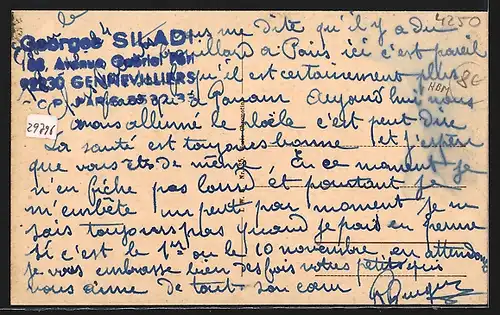 le
Vous me dite qu'il y a du
4250
Georges SILADI
brouillard a Paris ici c'est pareil
88, Avenue Gabriel Péri
92230 GENNEVILLIERS
qu'il est certainement plus
8€
HBM
C.C.P. PARIS
a Pantin Aujourd'hui nous
29796
avons allumé le poêle c'est peut dire
La santé est toujours bonne et j'espère
que vous êtes de même. En ce moment je
n'en fiche pas lourd et pourtant je
m'embête un peu par moment je ne
sais toujours pas quand je pars en perme
si c'est le 1er ou le 10 novembre en attendant
je vous embrasse bien des fois votre petit qui
vous aime de tout son cœur